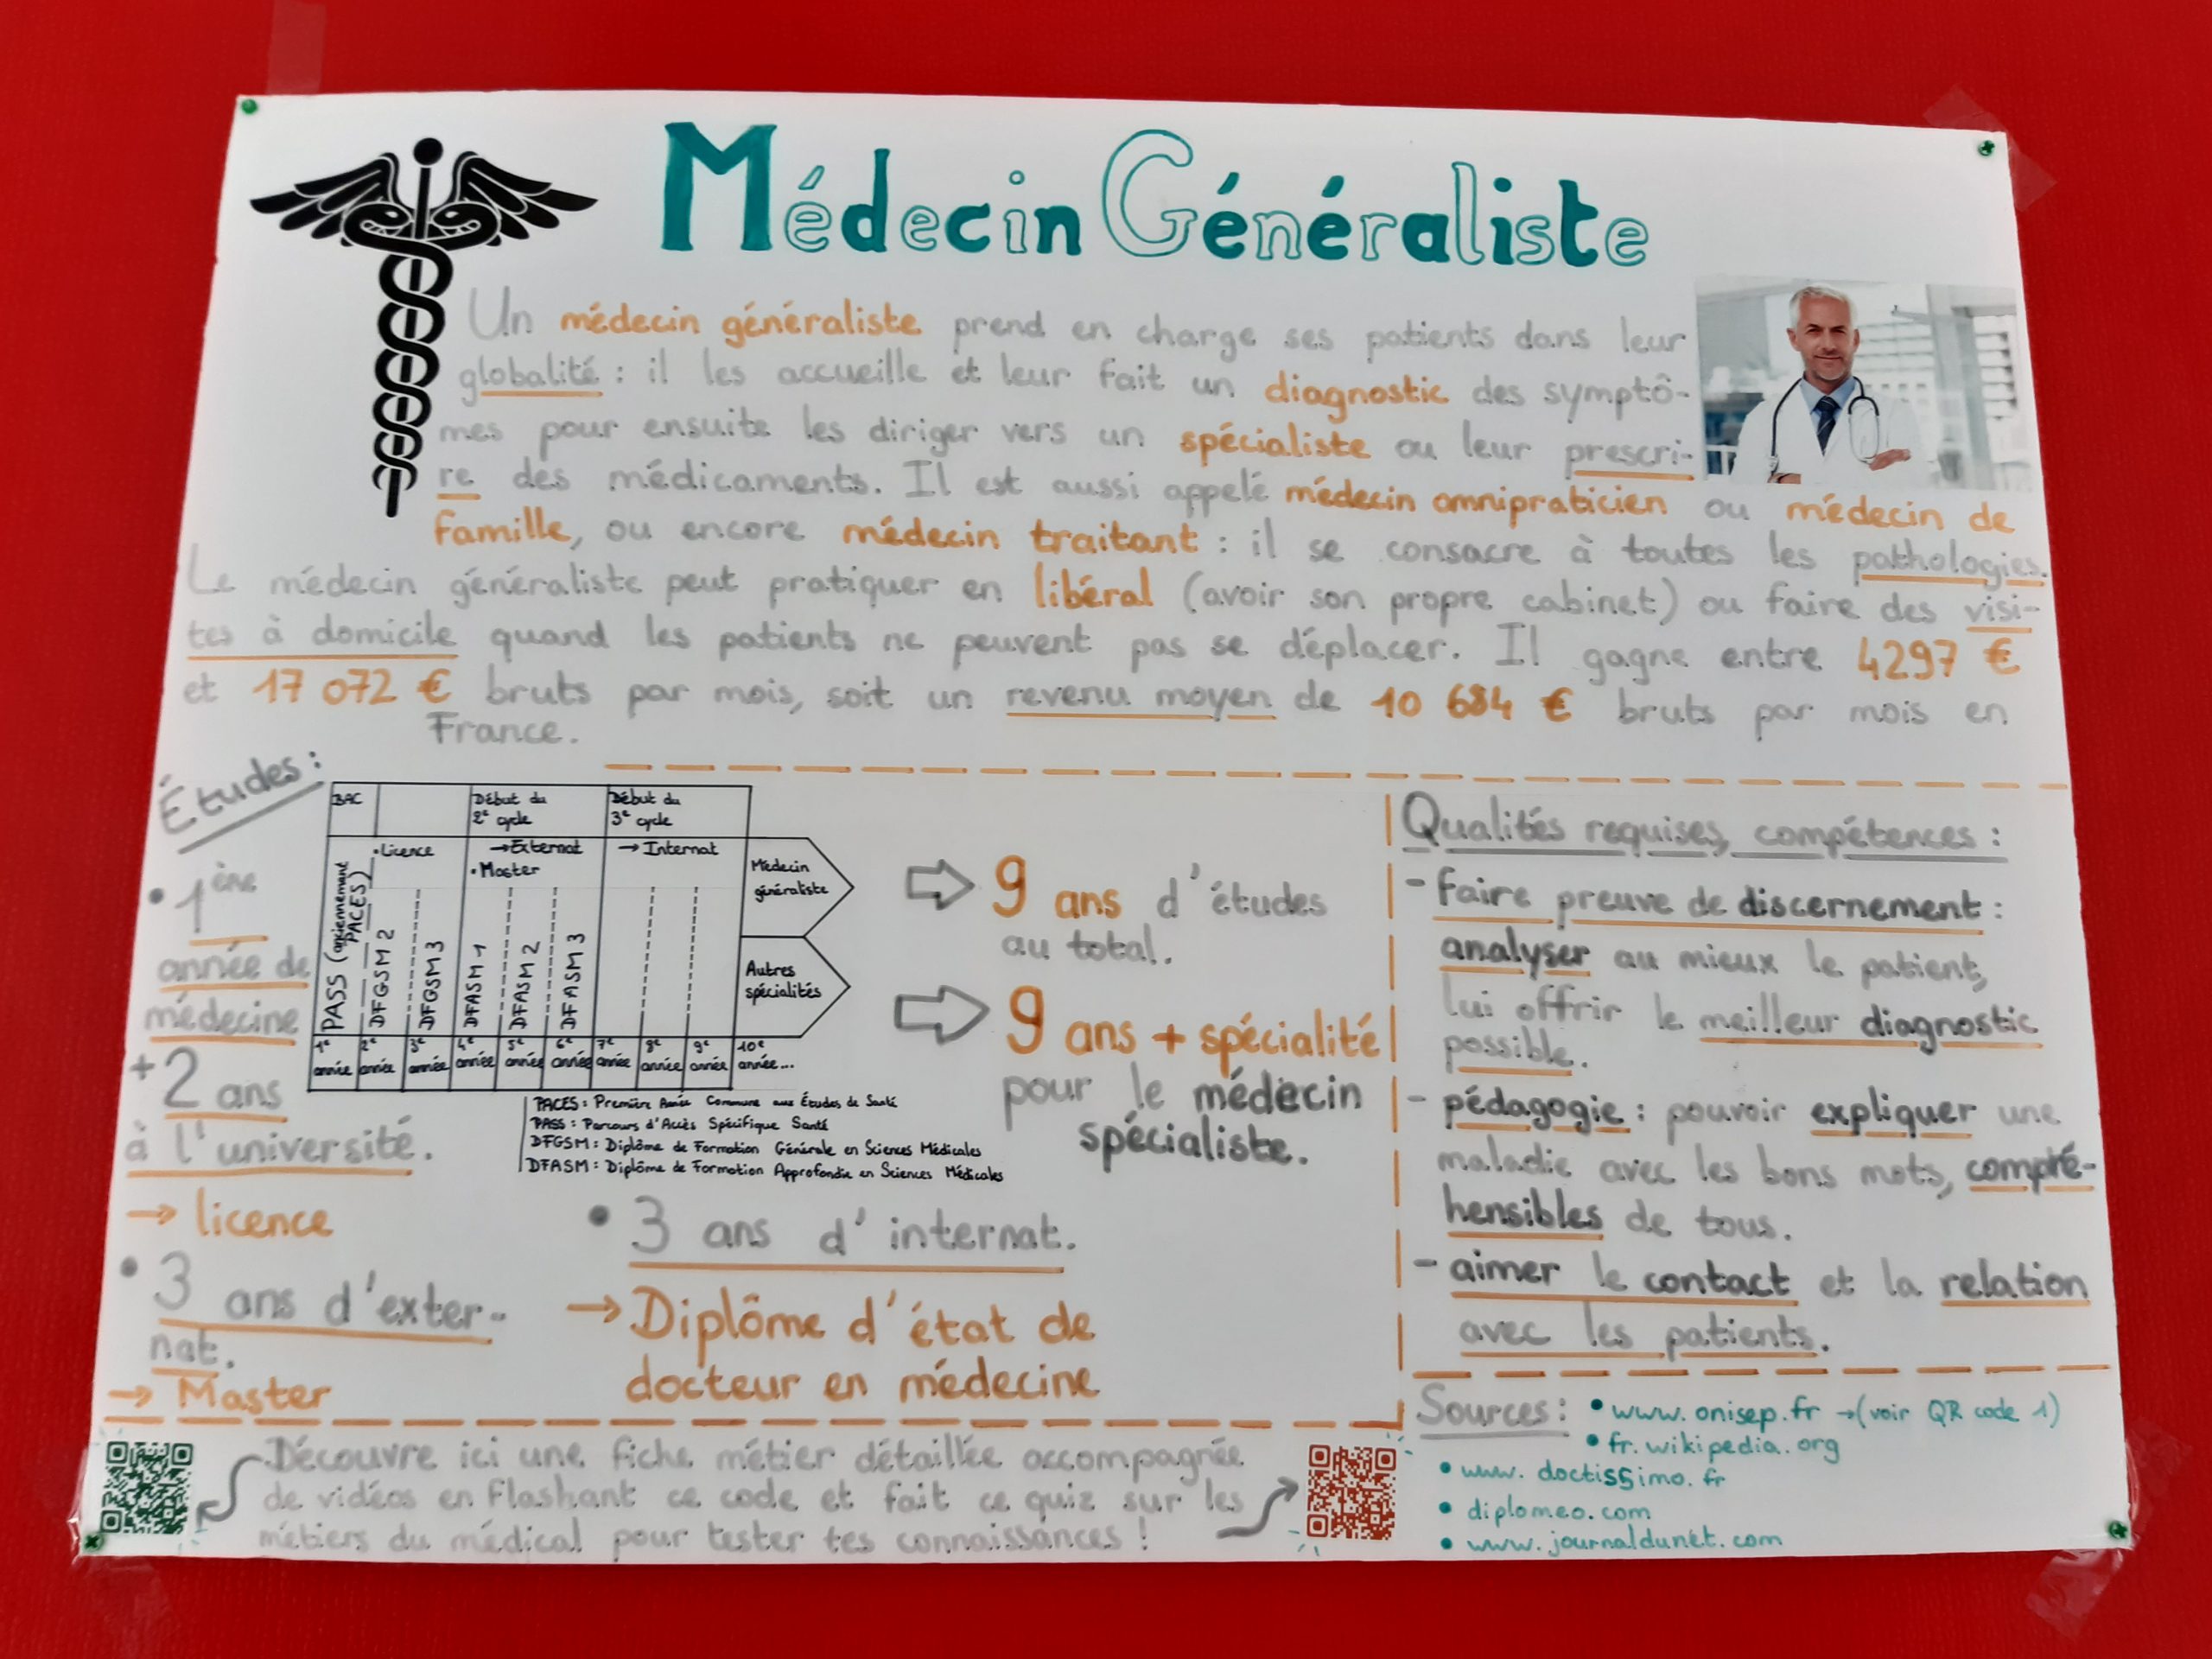 Médecin Généraliste
Un médecin généraliste prend en charge ses patients dans leur
globalité : il les accueille et leur fait un diagnostic des symptô-
mes pour ensuite les diriger vers un spécialiste ou leur prescri-
re des médicaments. Il est aussi appelé médecin omnipraticien ou médecin de
famille, ou encore médecin traitant : il se consacre à toutes les pathologies.
Le médecin généraliste peut pratiquer en libéral (avoir son propre cabinet) ou faire des visi-
tes à domicile quand les patients ne peuvent pas se déplacer. Il gagne entre 4297 €
et 17 072 € bruts par mois, soit un revenu moyen de 10 684 € bruts par mois en
France.
Études :
• 1ère
année de
médecine
+ 2 ans
à l'université.
→ licence
• 3 ans d'exter-
nat.
→ Master
BAC
Début du
2e cycle
Début du
3e cycle
• Licence
→ Externat
• Master
→ Internat
PASS (anciennement
PACES)
DFGSM 2
DFGSM 3
DFASM 1
DFASM 2
DFASM 3
Médecin
généraliste
Autres
spécialités
1e année
2e année
3e année
4e année
5e année
6e année
7e année
8e année
9e année
10e année...
PACES : Première Année Commune aux Études de Santé
PASS : Parcours d'Accès Spécifique Santé
DFGSM : Diplôme de Formation Générale en Sciences Médicales
DFASM : Diplôme de Formation Approfondie en Sciences Médicales
⇨ 9 ans d'études
au total.
⇨ 9 ans + spécialité
pour le médecin
spécialiste.
• 3 ans d'internat.
→ Diplôme d'état de
docteur en médecine
Qualités requises, compétences :
- faire preuve de discernement :
analyser au mieux le patient,
lui offrir le meilleur diagnostic
possible.
- pédagogie : pouvoir expliquer une
maladie avec les bons mots, compré-
hensibles de tous.
- aimer le contact et la relation
avec les patients.
Découvre ici une fiche métier détaillée accompagnée
de vidéos en flashant ce code et fait ce quiz sur les
métiers du médical pour tester tes connaissances !
Sources : • www.onisep.fr → (voir QR code 1)
• fr.wikipedia.org
• www.doctissimo.fr
• diplomeo.com
• www.journaldunet.com